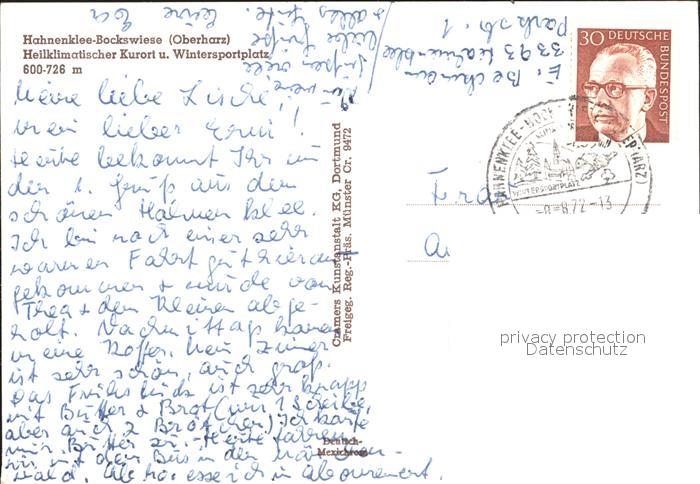 Hahnenklee-Bockswiese (Oberharz)
Heilklimatischer Kurort u. Wintersportplatz
600-726 m
Meine liebe Lische!
mein lieber Erni!
Heute bekommt Ihr nun
den 1. Gruß aus dem
schönen Hahnenklee.
Ich bin nach einer sehr
warmen Fahrt gut hier an
gekommen & wurde von
Thea & dem Kleinen abge-
holt. Nachmittag kamen
meine Koffer. Mein Zimmer
ist sehr schön, auch groß.
Das Frühstück ist sehr knapp
mit Butter & Brot (nur 1 Scheibe,
aber auch 2 Brötchen) Ich kaufe
mir Butter zu. Heute fahren
wir mit dem Bus in den
wald. esse ich im Abonnement.
liebe Grüße
& alles Gute.
E. Beckmann
3393 Hahnenklee
Parkstr. 1
30 DEUTSCHE
BUNDESPOST
HAHNENKLEE-BOCKSWIESE (OBERHARZ)
WINTERSPORTPLATZ
8.72-13
Cramers Kunstanstalt KG, Dortmund
Freigeg. Reg.-Präs. Münster Cr. 9472
Deutsch-
Mexichrom
privacy protection
Datenschutz